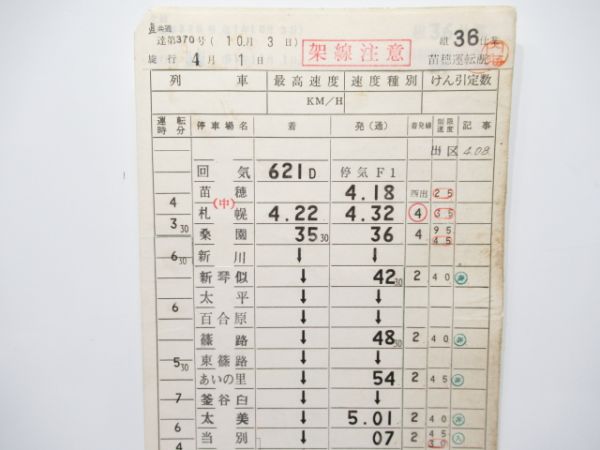 達第370号(10月3日) 架線注意 組36仕業
施行 4月1日 苗穂運転所
列車 最高速度 速度種別 けん引定数
KM/H
運転時分 停車場名 着 発(通) 着発線 制限速度 記事
出区 4.08
回気 621D 停気F1
苗穂 4.18 西出 25
4
(中)
札幌 4.22 4.32 4 35
3 30
桑園 35 30 36 4 95 45
新川 ↓ ↓
6 30
新琴似 ↓ 42 30 2 40
太平 ↓ ↓
6
百合原 ↓ ↓
篠路 ↓ 48 30 2 40
東篠路 ↓ ↓
5 30
あいの里 ↓ 54 2 45
釜谷臼 ↓ ↓
7
太美 ↓ 5.01 2 40
6
当別 ↓ 07 2 45 30
4